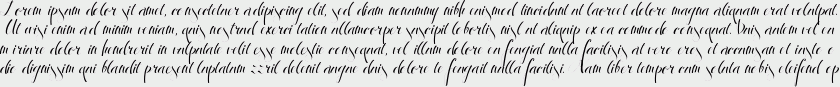 Lorem ipsum dolor sit amet, consectetuer adipiscing elit, sed diam nonummy nibh euismod tincidunt ut laoreet dolore magna aliquam erat volutpat.
Ut wisi enim ad minim veniam, quis nostrud exerci tation ullamcorper suscipit lobortis nisl ut aliquip ex ea commodo consequat. Duis autem vel eu
m iriure dolor in hendrerit in vulputate velit esse molestie consequat, vel illum dolore eu feugiat nulla facilisis at vero eros et accumsan et iusto o
dio dignissim qui blandit praesent luptatum zzril delenit augue duis dolore te feugait nulla facilisi. Nam liber tempor cum soluta nobis eleifend op